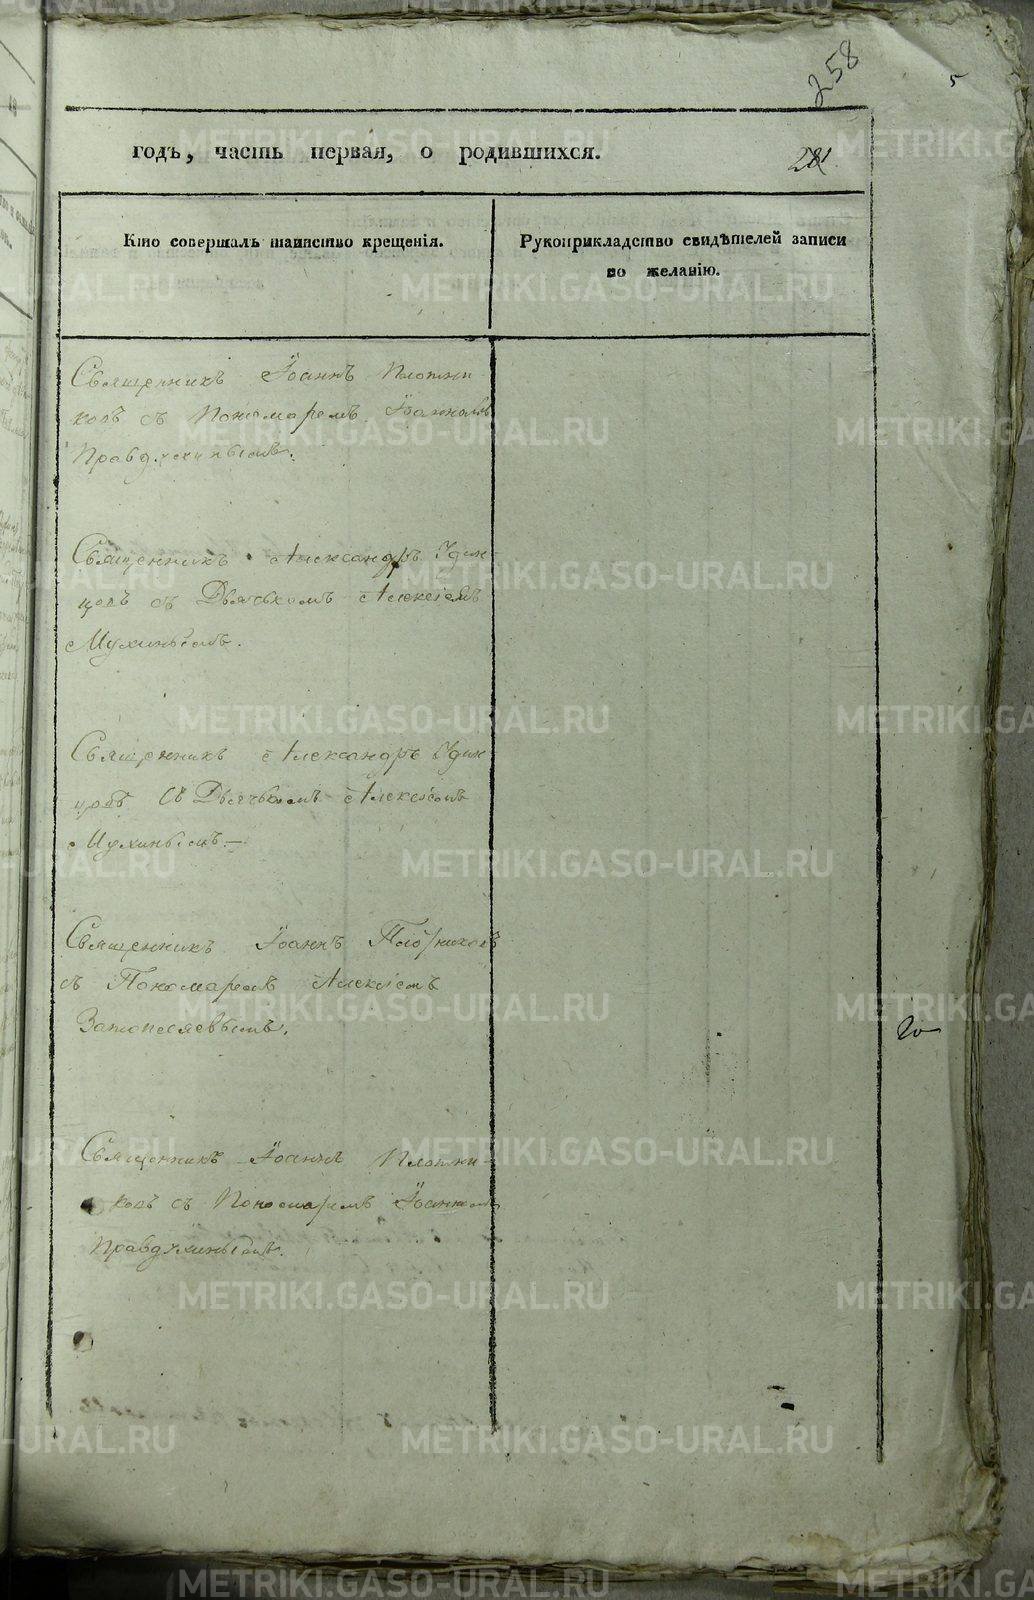 258
5
годъ, часть первая, о родившихся.
281
Кто совершалъ таинство крещенія.
Рукоприкладство свидѣтелей записи
по желанію.
Священникъ Іоаннъ Плотни-
ковъ съ Пономаремъ Іоанномъ
Правдухинымъ.
Священникъ Александръ Удин-
цовъ съ Дьячькомъ Алексіемъ
Мухинымъ.
Священникъ Александръ Удин
цовъ съ Дьячькомъ Алексіемъ
Мухинымъ.—
Священникъ Іоаннъ Плотниковъ
съ Пономаремъ Алексіемъ
Затопляевымъ.
Священникъ Іоаннъ Плотни-
ковъ съ Пономаремъ Іоанномъ
Правдухинымъ.
METRIKI.GASO-URAL.RU